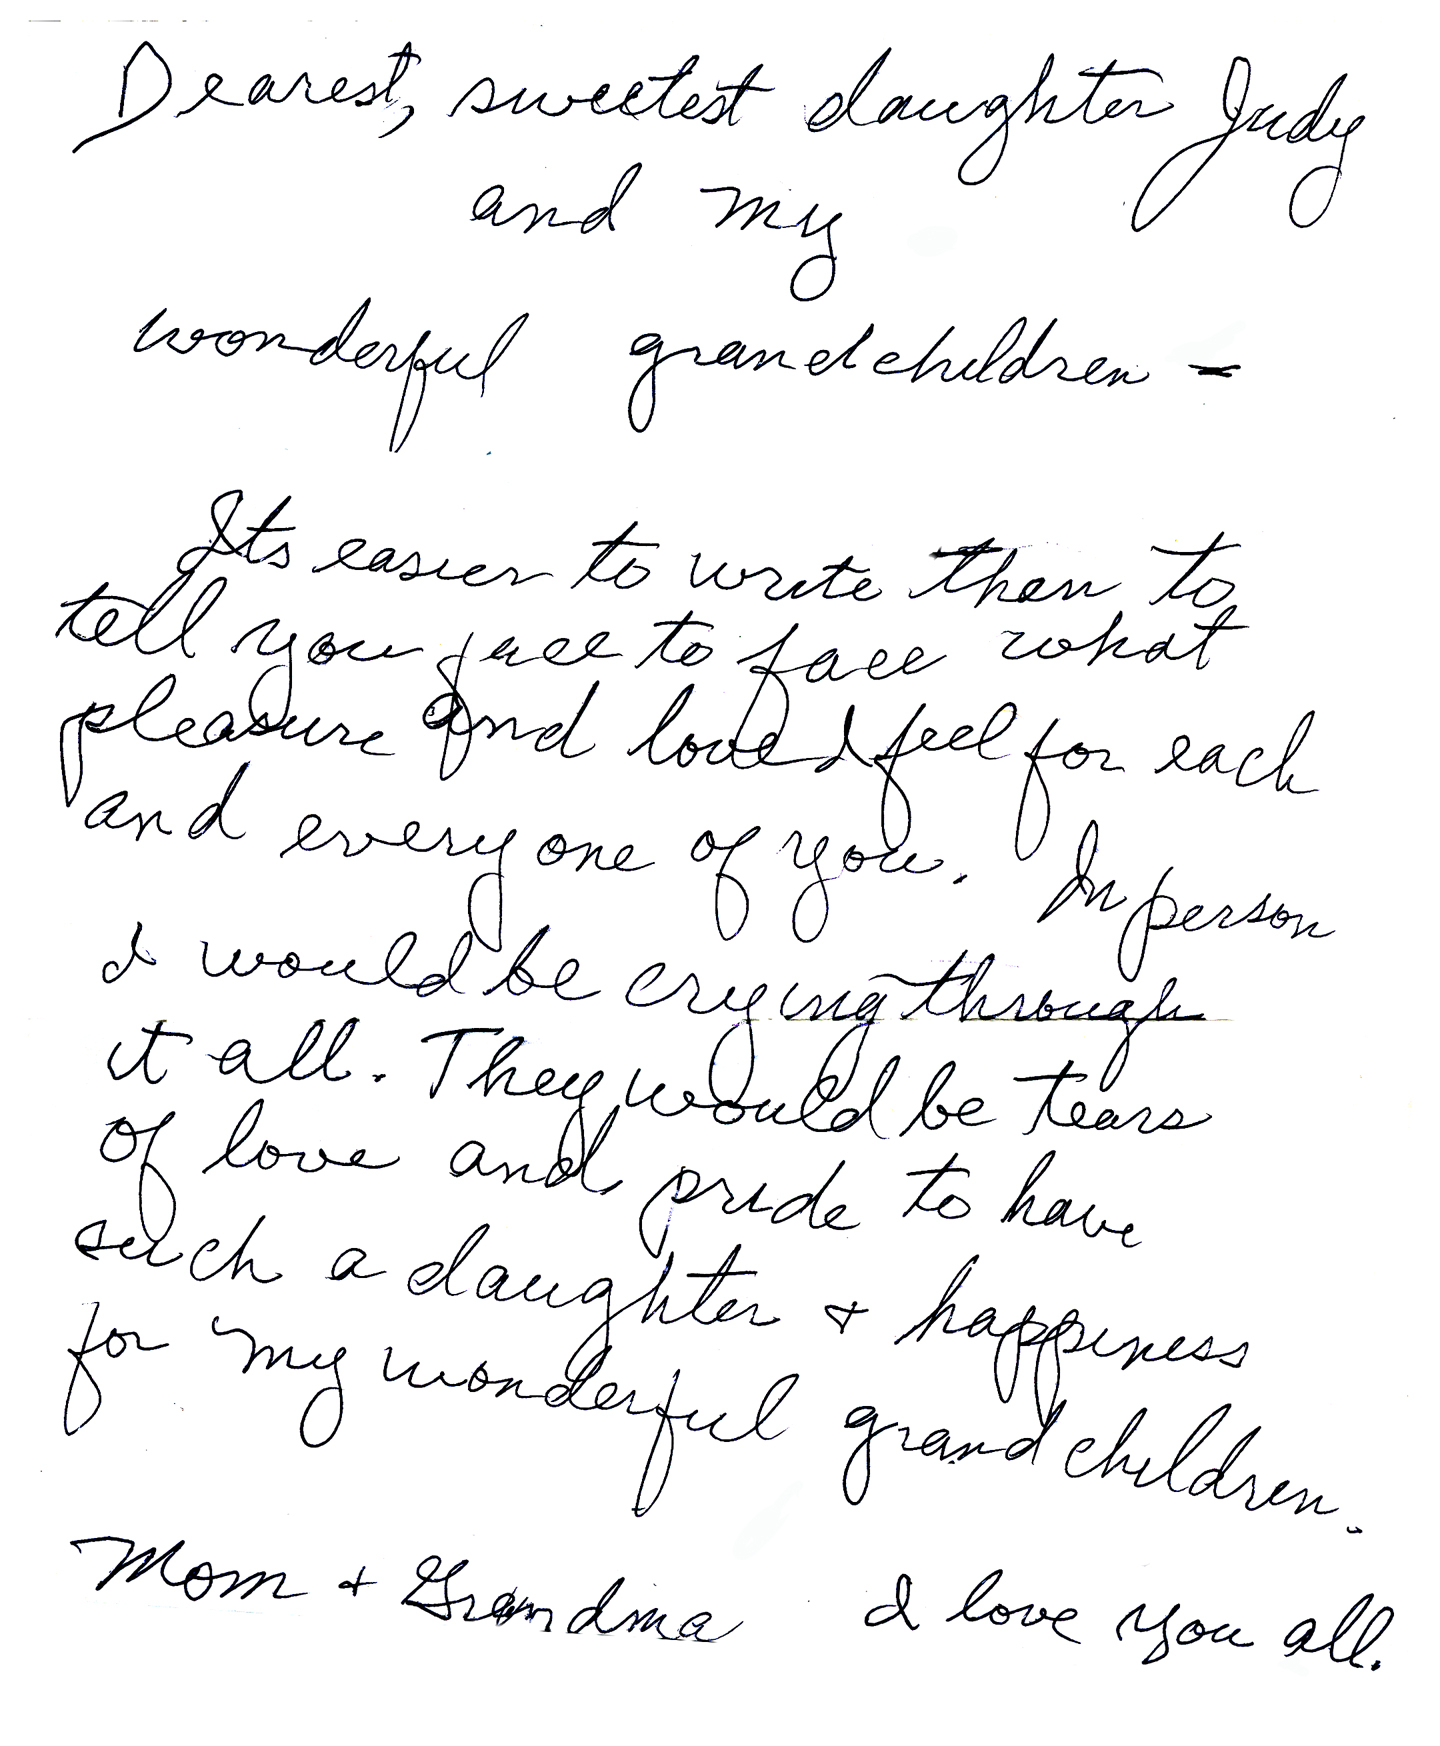 Dearest, sweetest daughter Judy
and my
wonderful grandchildren -
Its easier to write than to
tell you face to face what
pleasure and love I feel for each
and every one of you. In person
I would be crying through
it all. They would be tears
of love and pride to have
such a daughter + happiness
for my wonderful grandchildren.
Mom + Grandma I love you all.